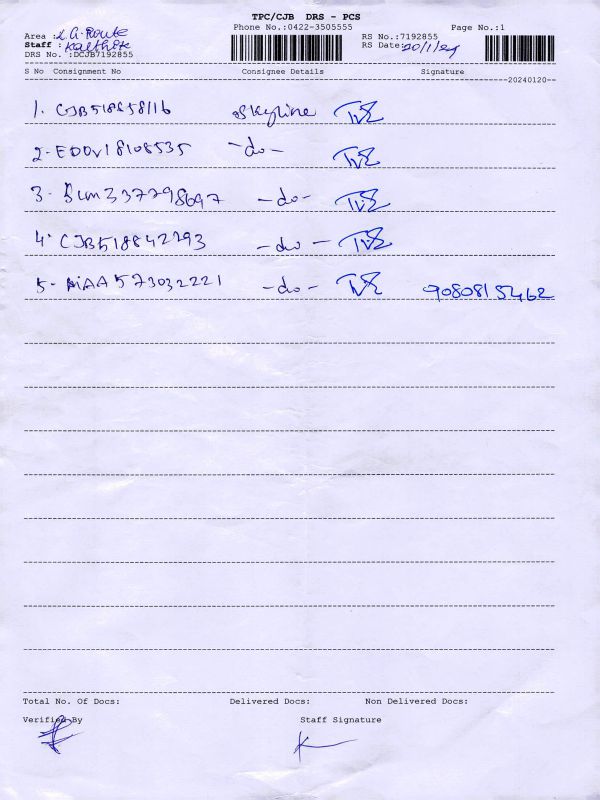 TPC/CJB DRS - PCS
Phone No.:0422-3505555 Page No.:1
Area : Route RS No.:7192855
Staff : Karthik RS Date: 20/1/24
DRS No. :DCJB7192855
S No Consignment No Consignee Details Signature
20240120
1. CJB518658116 Skyline
2- EDDV18108535 -do-
3- BLM337798697 -do-
4- CJB518842293 -do-
5- MAA573032221 -do- 9080815462
Total No. Of Docs: Delivered Docs: Non Delivered Docs:
Verified By Staff Signature